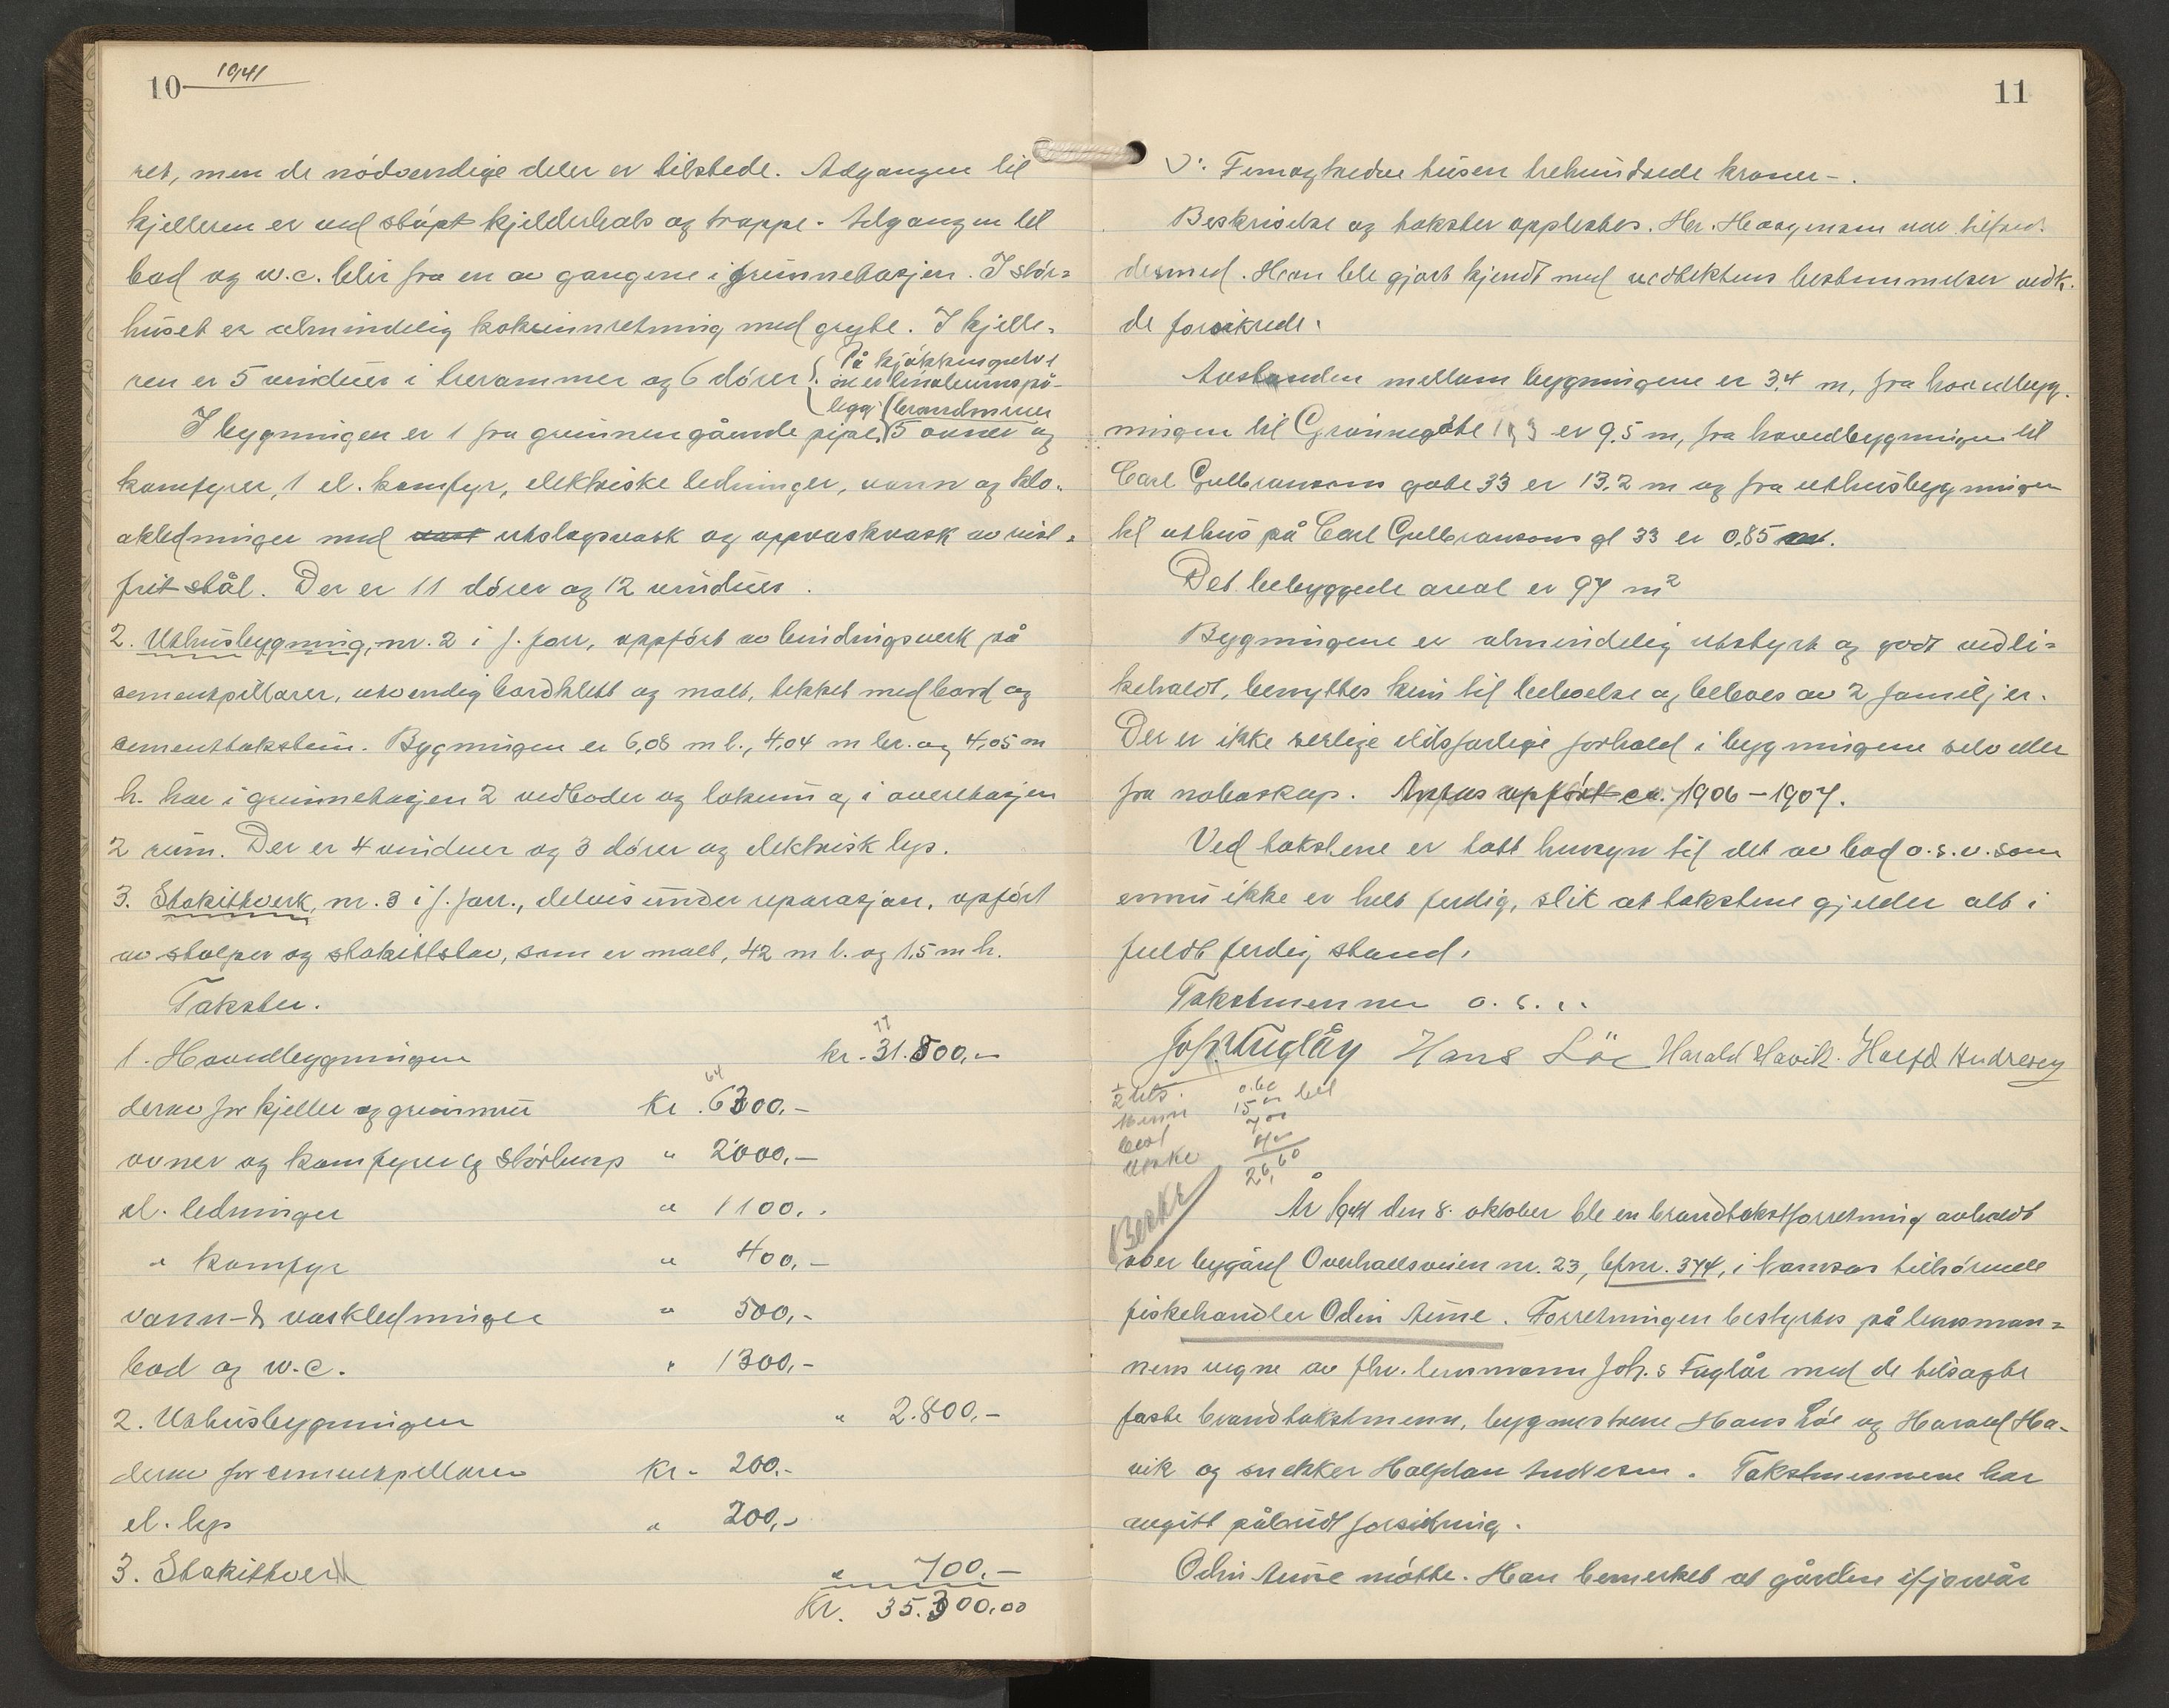 10 1941
ret, men de nödvendige deler er tilstede. Adgangen til
kjelleren er ved støpt kjelderhals og trappe. Adgangen til
bad og w.c. blir fra en av gangene i grunnetasjen. I stör=
huset er almindelig kokeinnretning med gryte. I kjelle=
ren er 5 vinduer i trerammer og 6 dörer.
På kjökkengulve
ne er linoleumspå-
legg.
I bygningen er 1 fra grunnen gående pipe, brandmurer 5 ovner og
komfyrer, 1 el. komfyr, elektriske ledninger, vann og klo-
akledninger med utslagsvask og oppvaskvask av rust=
frit stål. Der er 11 dörer og 12 vinduer.
2. Uthusbygning, nr. 2 i f. forr, oppfört av bindingsverk på
cementpillarer, utvendig bordkledt og malt, tekket med bord og
cementtakstein. Bygningen er 6,08 m l., 4,04 m br. og 4,05 m
h. har i grunnetasjen 2 vedboder og lokum og i overetasjen
2 rum. Der er 4 vinduer og 3 dörer og elektrisk lys.
3. Stakittverk, nr. 3 i f. forr., delvis under reparasjon, opfört
av stolper og stakittstav, som er malt, 42 m l. og 1,5 m h.
Takster.
1. Hovedbygningen kr. 31.800,-
derav for kjeller og grunmur kr. 6300,-
ovner og komfyrer og störhusp " 2000,-
el. ledninger " 1100,-
" komfyr " 400,-
vann- & vaskledninger " 500,-
bad og w.c. " 1300,-
2. Uthusbygningen " 2.800,-
derav for cementpillarer kr. 200.-
el. lys " 200,-
3. Stakittverk " 700,-
Kr. 35.300,00
11
ɔ: Femogtredve tusen trehundrede kroner-.
Beskrivelse og takster opplestes. Hr. Haagensen var tilfred=
dermed. Han ble gjort kjendt med vedtektens bestemmelser vedk.
de forsikrede.
Avstanden mellem bygningene er 3,4 m, fra hovedbyg-
ningen til Grønnegate 13 er 9,5 m, fra hovedbygningen til
Carl Gulbransons gate 33 er 13,2 m og fra uthusbygningen
til uthus på Carl Gulbransons gt 33 er 0,85 m.
Det bebyggede areal er 97 m²
Bygningene er almindelig utstyrt og godt vedli=
keholdt, benyttes kun til beboelse og beboes av 2 familjer.
Der er ikke særlige ildsfarlige forhold i bygningene selv eller
fra naboskap. opfört ca. 1906-1907.
Ved takstene er tatt hensyn til det av bad o.s.v. som
ennu ikke er helt ferdig, slik at takstene gjelder alt i
fuldt ferdig stand.
Takstmennene o.s.v.
Joh. Fuglår Hans Löe Harald Havik. Halfd Andresen
½ uts. 0.60
15
26,60
Beskr
År 1941 den 8. oktober ble en brandtakstforretning avholdt
over bygård Overhallsveien nr. 23, bfnr. 374, i Namsos tilhörende
fiskehandler Odin Aune. Forretningen bestyrtes på lensman=
nens vegne av fhv. lensmann Joh. s Fuglår med de tilsagte
faste brandtakstmenn, bygmestrene Hans Löe og Harald Ha-
vik og snekker Halfdan Andresen. Takstmennene har
avgitt påbudt forsikring.
Odin Aune mötte. Han bemerket at gården ifjorvår